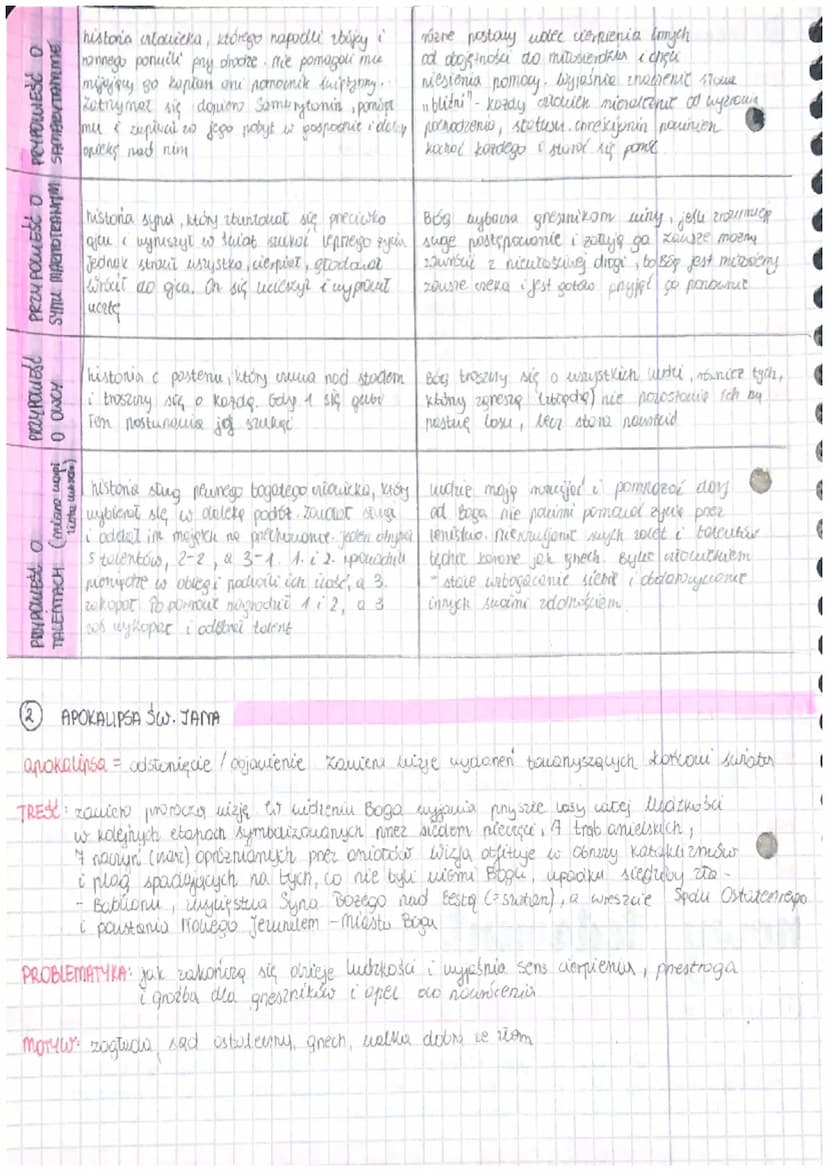 PRZYPOWIEŚĆ O
SAMARYTANINIE
historia człowieka, którego napadli zbójcy i
rannego porzucili przy drodze. Nie pomagali mu
mijający go kapłan ani pomocnik świątynny.
Zatrzymał się dopiero Samarytanin, pomógł
mu i zapłacił za jego pobyt w gospodzie i dalszą
opiekę nad nim
różne postawy wobec cierpienia innych
od obojętności do miłosierdzia i chęci
niesienia pomocy. Wyjaśnia znaczenie słowa
"bliźni" - każdy człowiek niezależnie od wyznania
pochodzenia, statusu. chrześcijanin powinien
kochać każdego i starać się pomóc
PRZYPOWIEŚĆ O
SYNU MARNOTRAWNYM
historia syna, który zbuntował się przeciwko
ojcu i wyruszył w świat szukać lepszego życia
Jednak stracił wszystko, cierpiał, głodował
Wrócił do ojca. On się ucieszył i wyprawił
ucztę
Bóg wybacza grzesznikom winy, jeśli zrozumieją
swoje postępowanie i żałują go zawsze można
zawrócić z niewłaściwej drogi, bo Bóg jest miłosierny
zawsze czeka i jest gotów przyjąć go ponownie
PRZYPOWIEŚĆ
O OWCY
historia o pasterzu, który czuwa nad stadem
i troszczy się o każdą. Gdy 1 się gubi
Ten postanawia jej szukać
Bóg troszczy się o wszystkich ludzi, również tych,
którzy zgrzeszą (zbłądzą) nie pozostawia ich na
pastwę losu, lecz stara nawrócić
PRZYPOWIEŚĆ O
TALENTACH
historia sług pewnego bogatego człowieka, który
wybierał się w daleką podróż. Zawołał sługi
i oddał im majątek na przechowanie. jeden otrzymał
5 talentów, 2-2, a 3-1. 1. i 2. wprowadzili
pieniądze w obieg i podwoili ich ilość, a 3.
zakopał. Po powrocie nagrodził 1 i 2, a 3
wykopać i odebrał talent
ludzie mają rozwijać i pomnażać dary
od Boga nie powinni pomarnować życie przez
lenistwo. swych zalet i talentów
będzie karane jak grzech. Bycie człowiekiem
- stałe wzbogacanie siebie i obdarowywanie
innych swoimi zdolnościami
② APOKALIPSA ŚW. JANA
apokalipsa = odsłonięcie / objawienie zawiera wizje wydarzeń towarzyszących końcowi świata
TREŚĆ: zawiera proroczą wizję. W widzeniu Boga wyjawia przyszłe losy całej ludzkości
w kolejnych etapach symbolizowanych przez siedem pieczęci, 7 trąb anielskich,
7 naczyń (czasz) opróżnianych przez aniołów. Wizja obfituje w obrazy kataklizmów
i plag spadających na tych, co nie byli wierni Bogu, upadku siedziby zła -
- Babilonu, zwycięstwa Syna Bożego nad Bestią (=szatan), a wreszcie Sądu Ostatecznego
i powstania Nowego Jeruzalem - miasta Boga
PROBLEMATYKA: jak zakończą się dzieje ludzkości i wyjaśnia sens cierpienia, przestroga
i groźba dla grzeszników i apel do nawrócenia
MOTYW: zagłada, sąd ostateczny, grzech, walka dobra ze złem